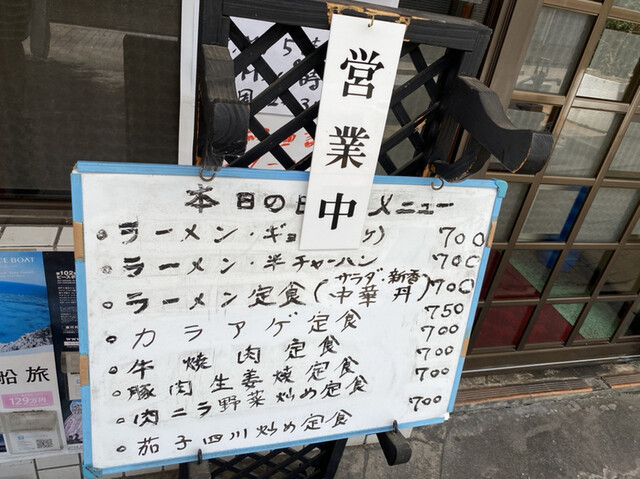 営業中
本日の日 メニュー
・ラーメン・ギョ
700
・ラーメン・半チャーハン
700
・ラーメン定食(サラダ・新香
中華丼)
700
・カラアゲ定食
750
・牛焼肉定食
700
・豚肉生姜焼定食
700
・肉ニラ野菜炒め定食
700
・茄子四川炒め定食
700
船旅
129万円